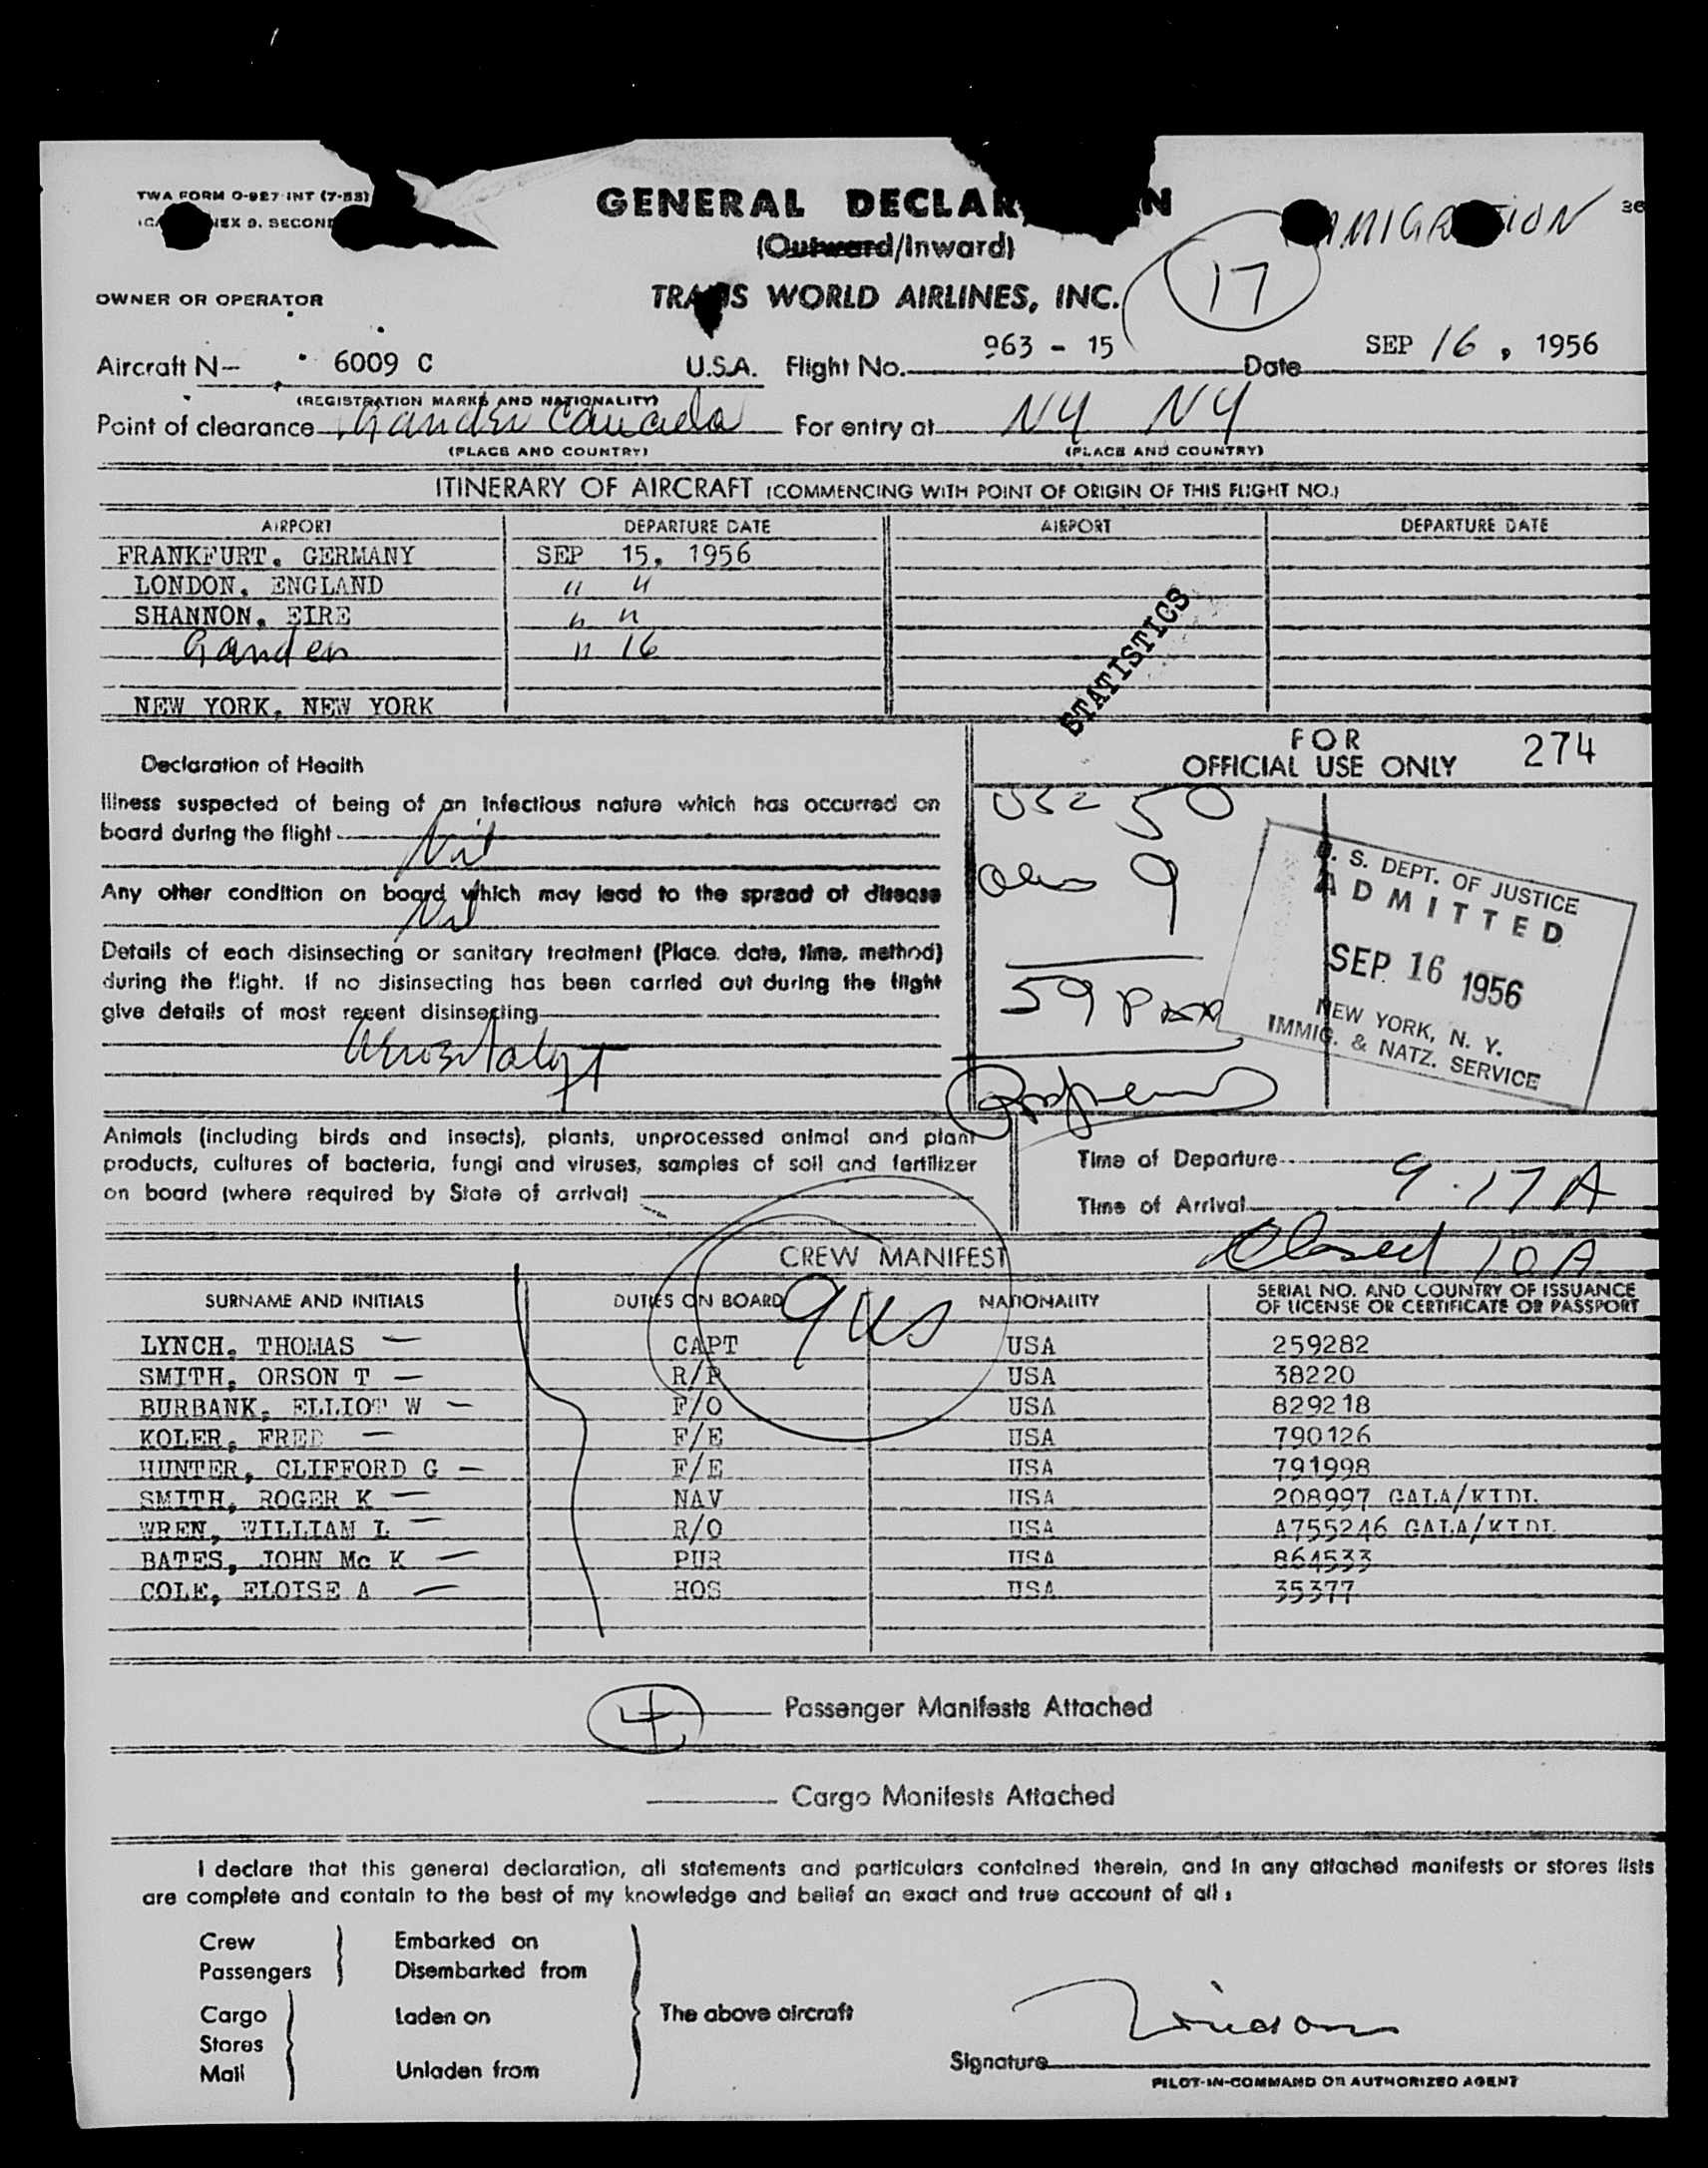 TWA FORM O-927-INT (7-53)
NEX 9. SECOND
GENERAL DECLAR N
(Outward/Inward)
MIGR ION
36
17
OWNER OR OPERATOR
TRA S WORLD AIRLINES, INC.
Aircraft N- 6009 C U.S.A. Flight No. 963 - 15 Date SEP 16, 1956
(REGISTRATION MARKS AND NATIONALITY)
Point of clearance Gander Canada For entry at NY NY
(PLACE AND COUNTRY) (PLACE AND COUNTRY)
ITINERARY OF AIRCRAFT (COMMENCING WITH POINT OF ORIGIN OF THIS FLIGHT NO.)
AIRPORT DEPARTURE DATE AIRPORT DEPARTURE DATE
FRANKFURT, GERMANY SEP 15, 1956
LONDON, ENGLAND " "
SHANNON, EIRE " "
Gander " 16
NEW YORK, NEW YORK
STATISTICS
FOR
OFFICIAL USE ONLY 274
Declaration of Health
Illness suspected of being of an infectious nature which has occurred on
board during the flight Nil
Any other condition on board which may lead to the spread of disease
Nil
Details of each disinsecting or sanitary treatment (Place, date, time, method)
during the flight. If no disinsecting has been carried out during the flight
give details of most recent disinsecting
USC 50
9
59 Pax
U. S. DEPT. OF JUSTICE
ADMITTED
SEP 16 1956
NEW YORK, N. Y.
IMMIG. & NATZ. SERVICE
Animals (including birds and insects), plants, unprocessed animal and plant
products, cultures of bacteria, fungi and viruses, samples of soil and fertilizer
on board (where required by State of arrival)
Time of Departure
Time of Arrival 9.17 A
Closed 10 A
CREW MANIFEST
9 US
SURNAME AND INITIALS DUTIES ON BOARD NATIONALITY SERIAL NO. AND COUNTRY OF ISSUANCE
OF LICENSE OR CERTIFICATE OR PASSPORT
LYNCH, THOMAS — CAPT USA 259282
SMITH, ORSON T — R/P USA 38220
BURBANK, ELLIOT W — F/O USA 829218
KOLER, FRED — F/E USA 790126
HUNTER, CLIFFORD G — F/E USA 791998
SMITH, ROGER K — NAV USA 208997 GALA/KIDL
WREN, WILLIAM L — R/O USA A755246 GALA/KIDL
BATES, JOHN Mc K — PUR USA 864533
COLE, ELOISE A — HOS USA 35377
4 Passenger Manifests Attached
Cargo Manifests Attached
I declare that this general declaration, all statements and particulars contained therein, and in any attached manifests or stores lists
are complete and contain to the best of my knowledge and belief an exact and true account of all:
Crew Embarked on
Passengers Disembarked from
Cargo Laden on The above aircraft
Stores
Mail Unladen from
Signature
PILOT-IN-COMMAND OR AUTHORIZED AGENT